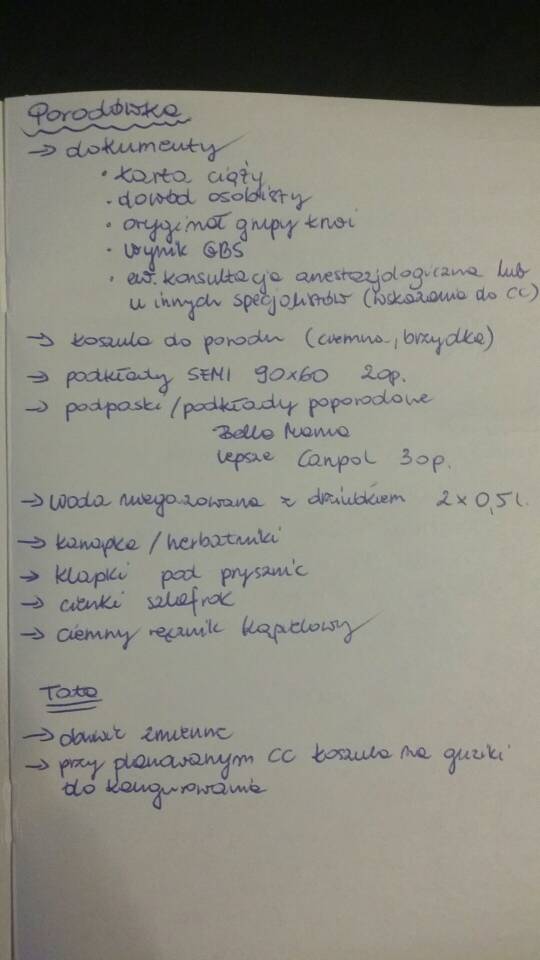 Porodówka
→ dokumenty
• karta ciąży
• dowód osobisty
• oryginał grupy krwi
• wynik GBS
• ew. konsultacja anestezjologiczna lub
u innych specjalistów (wskazania do CC)
→ koszula do porodu (ciemna, brzydka)
→ podkłady SENI 90x60 2op.
→ podpaski/podkłady poporodowe
Bella Mama
lepsze Canpol 3op.
→ woda niegazowana z dziubkiem 2 x 0,5 l.
→ kanapka / herbatniki
→ klapki pod prysznic
→ cienki szlafrok
→ ciemny ręcznik kąpielowy
Tata
→ obuwie zmienne
→ przy planowanym CC koszula na guziki
do kangurowania